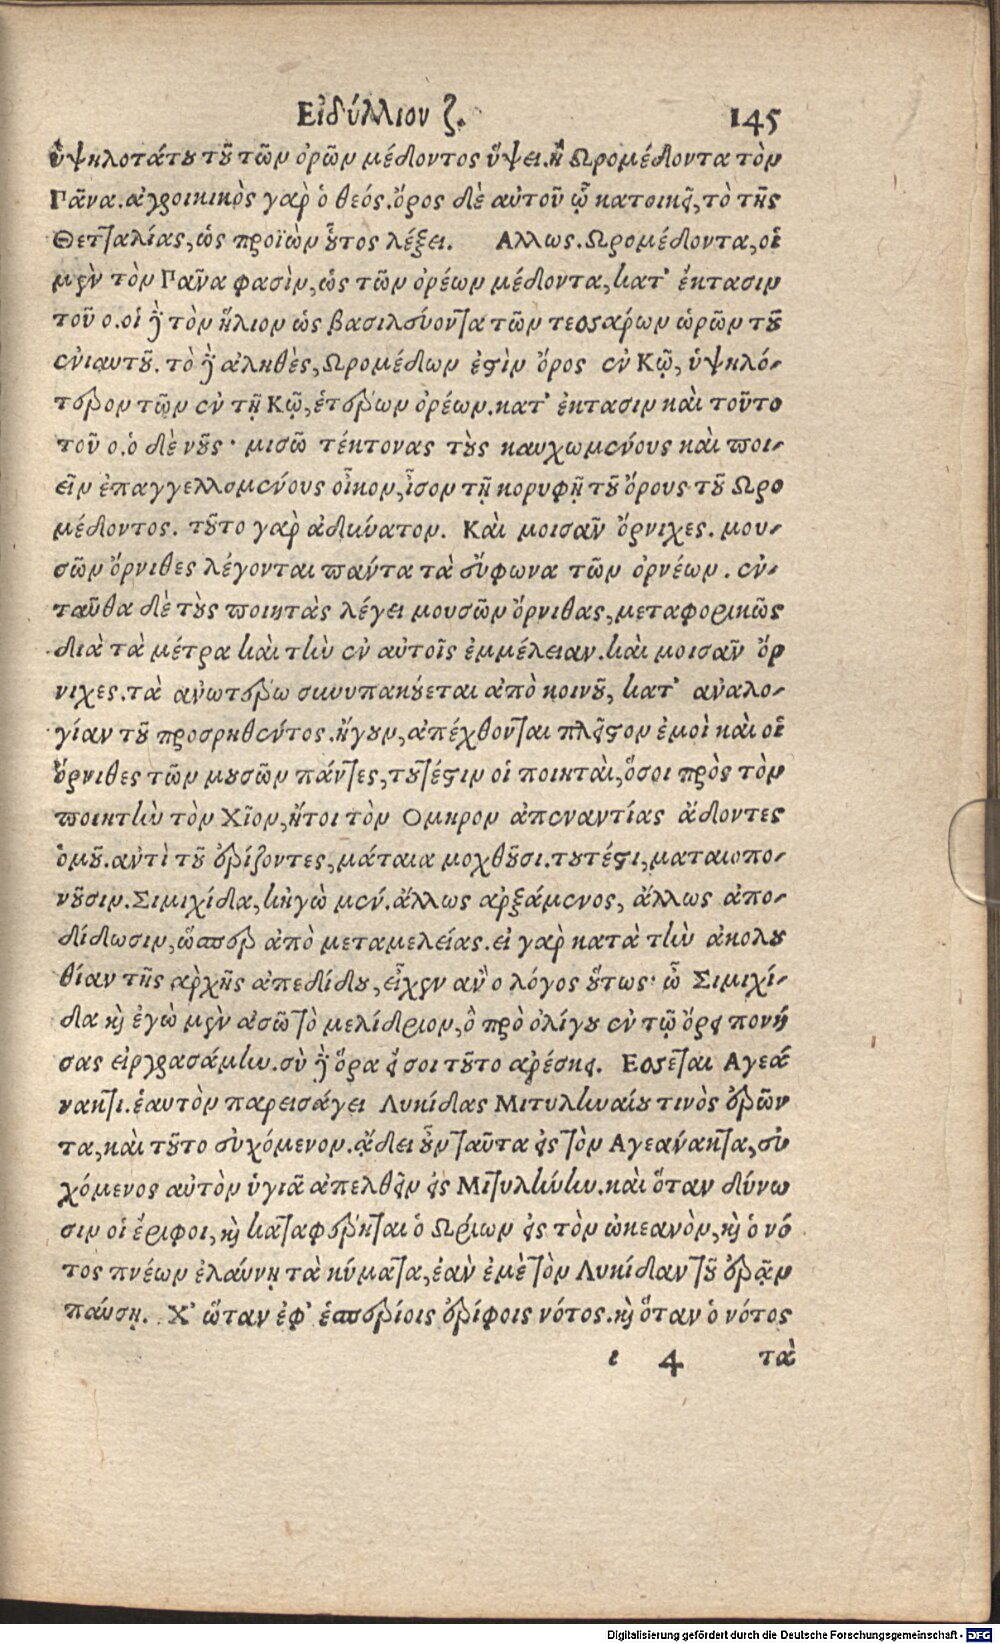 Εἰδύλλιον ζ. 145
ὑψηλοτάτου τοῦ τῶν ὀρῶν μέδοντος ὕψει. ἢ Ωρομέδοντα τὸν
Πᾶνα. ἀγροικικὸς γὰρ ὁ θεός. ὄρος δὲ αὐτοῦ ᾧ κατοικεῖ, τὸ τῆς
Θετταλίας, ὡς προϊὼν οὗτος λέξει. Αλλως. Ωρομέδοντα, οἱ
μὲν τὸν Πᾶνα φασὶν, ὡς τῶν ὀρέων μέδοντα, κατ' ἔκτασιν
τοῦ ο. οἱ δὲ τὸν ἥλιον ὡς βασιλεύοντα τῶν τεσσάρων ὡρῶν τοῦ
ἐνιαυτοῦ. τὸ δὲ ἀληθὲς, Ωρομέδων ἐστὶν ὄρος ἐν Κῷ, ὑψηλό-
τερον τῶν ἐν τῇ Κῷ, ἑτέρων ὀρέων. κατ' ἔκτασιν καὶ τοῦτο
τοῦ ο. ὁ δὲ νοῦς· μισῶ τέκτονας τοὺς καυχωμένους καὶ ποι-
εῖν ἐπαγγελλομένους οἶκον, ἶσον τῇ κορυφῇ τοῦ ὄρους τοῦ Ωρο
μέδοντος. τοῦτο γὰρ ἀδύνατον. Καὶ μοισᾶν ὄρνιχες. μου-
σῶν ὄρνιθες λέγονται πάντα τὰ σύφωνα τῶν ὀρνέων. ἐν-
ταῦθα δὲ τοὺς ποιητὰς λέγει μουσῶν ὄρνιθας, μεταφορικῶς
διὰ τὰ μέτρα καὶ τὴν ἐν αὐτοῖς ἐμμέλειαν. καὶ μοισᾶν ὄρ
νιχες. τὰ ἀνωτέρω συνυπακούεται ἀπὸ κοινοῦ, κατ' ἀναλο-
γίαν τοῦ προσρηθέντος. ἤγουν, ἀπέχθονται πλεῖστον ἐμοὶ καὶ οἱ
ὄρνιθες τῶν μουσῶν πάντες, τουτέστιν οἱ ποιηταὶ, ὅσοι πρὸς τὸν
ποιητὴν τὸν Χῖον, ἤτοι τὸν Ομηρον ἀπεναντίας ᾄδοντες
ὁμοῦ. ἀντὶ τοῦ ἐρίζοντες, μάταια μοχθοῦσι. τουτέστι, ματαιοπο-
νοῦσιν. Σιμιχίδα, κἠγὼ μέν. ἄλλως ἀρξάμενος, ἄλλως ἀπο-
δίδωσιν, ὥσπερ ἀπὸ μεταμελείας. εἰ γὰρ κατὰ τὴν ἀκολου
θίαν τῆς ἀρχῆς ἀπεδίδου, εἶχεν ἂν ὁ λόγος οὕτως· ὦ Σιμιχί-
δα καὶ ἐγὼ μὲν ἀσῶ τὸ μελίδριον, ὃ πρὸ ὀλίγου ἐν τῷ ὄρει πονή
σας εἰργασάμην. σὺ δὲ ὅρα εἴ σοι τοῦτο ἀρέσει. Εσσεται Αγεά
νακτι. ἑαυτὸν παρεισάγει Λυκίδας Μιτυληναίου τινὸς ἐρῶν
τα, καὶ τοῦτο εὐχόμενον. ᾄδει οὖν ταῦτα εἰς τὸν Αγεάνακτα, εὐ
χόμενος αὐτὸν ὑγιᾶ ἀπελθεῖν εἰς Μιτυλήνην. καὶ ὅταν δύνω
σιν οἱ ἔριφοι, καὶ καταφέρηται ὁ Ωρίων εἰς τὸν ὠκεανὸν, καὶ ὁ νό
τος πνέων ἐλαύνῃ τὰ κύματα, ἐὰν ἐμὲ τὸν Λυκίδαν τοῦ ἐρᾷν
παύσῃ. Χ' ὥταν ἐφ' ἑσπερίοις ἐρίφοις νότος. καὶ ὅταν ὁ νότος
ι 4 τὰ
Digitalisierung gefördert durch die Deutsche Forschungsgemeinschaft - DFG